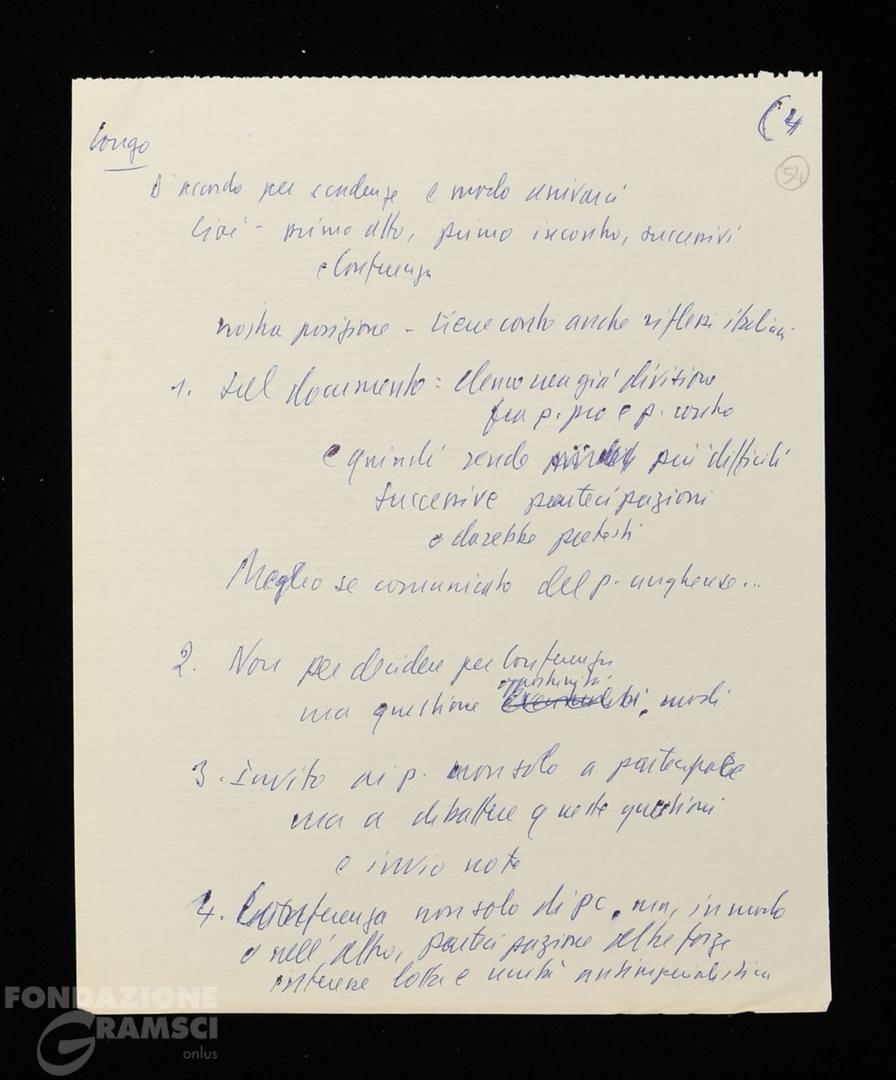 (4
Longo
54
D'accordo per scadenze e modo
Cioè - primo atto, primo incontro, successivi
e Conferenza
nostra posizione - tiene conto anche riflessi italiani
1. Sul documento: divisione
fra p. pro e p. contro
e quindi rende più difficili
successive partecipazioni
e darebbe pretesti
Meglio se comunicato del p. ungherese...
2. Non per decidere per Conferenza
opportunità
ma questione, modi
3. Invito ai p. non solo a partecipare
ma a dibattere queste questioni
e invio note
4. Conferenza non solo di pc, ma, in modo
o nell'altro, partecipazione altre forze
interesse lotta e unità antimperialistica
FONDAZIONE
GRAMSCI
onlus